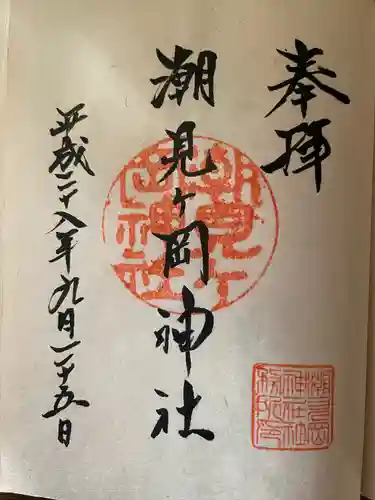 奉拝
潮見ヶ岡神社
平成二十八年九月二十五日
潮見ヶ岡神社
潮見岡神社社務所印